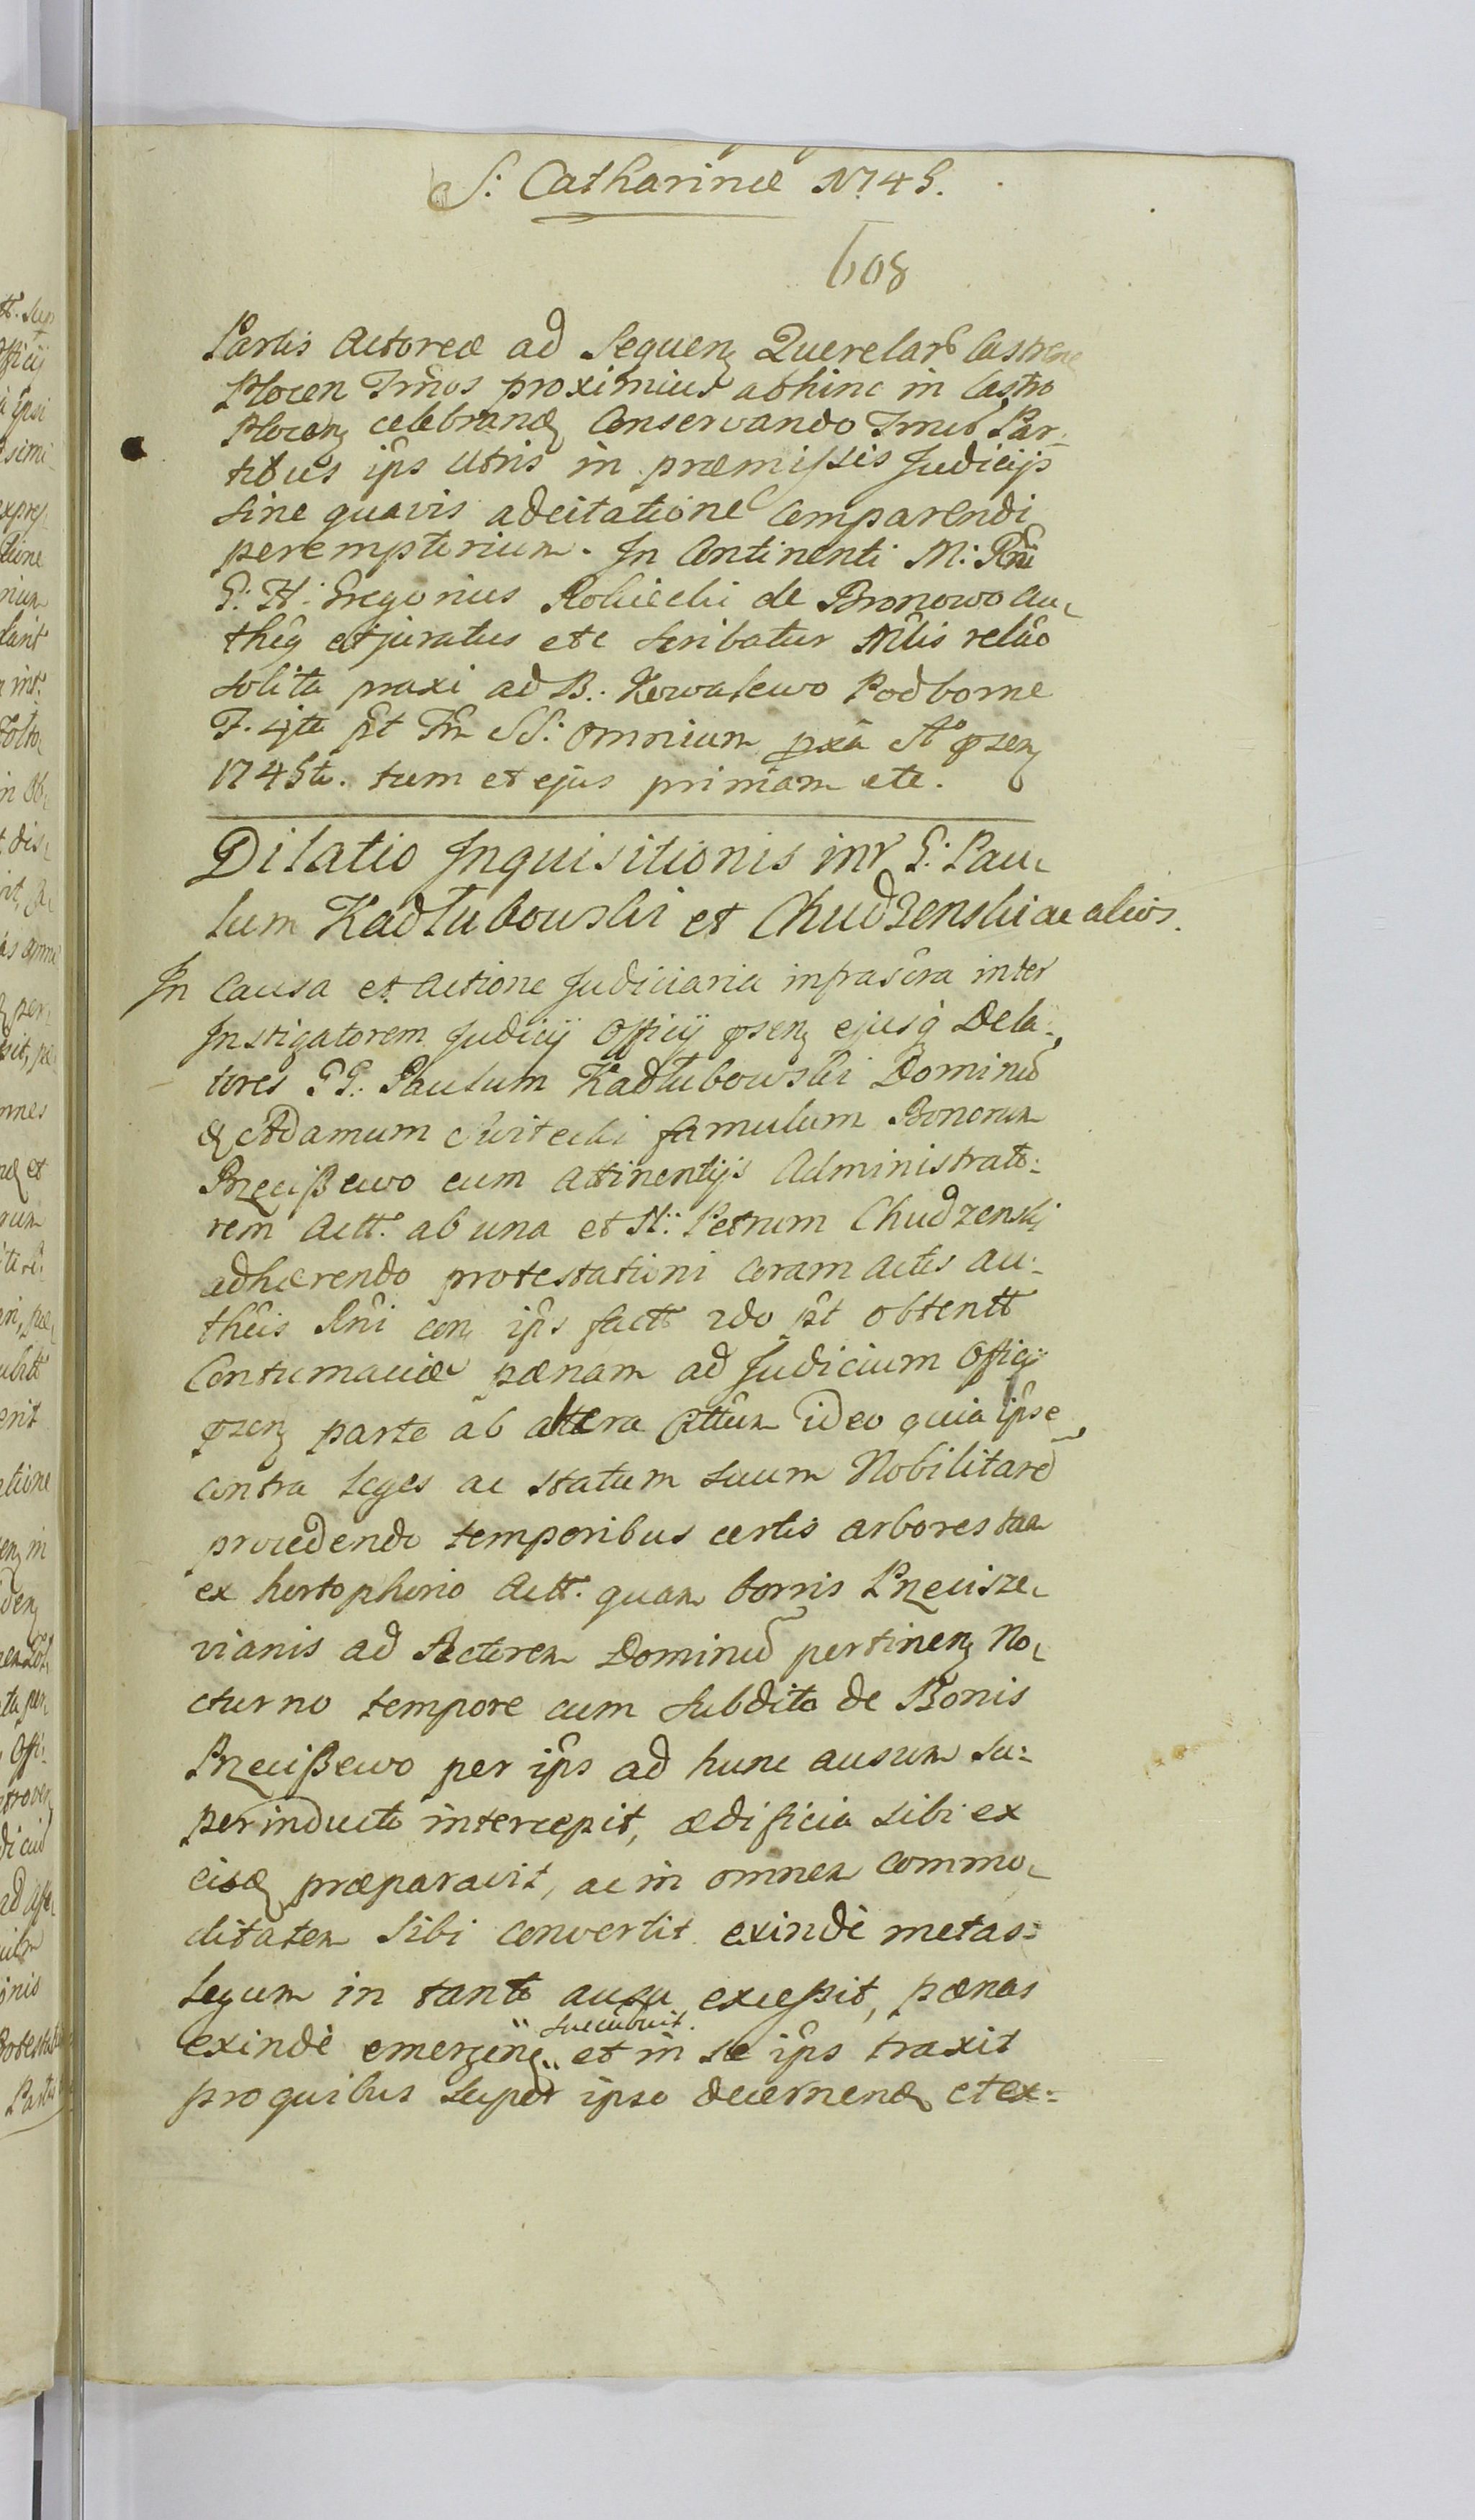 S: Catharinæ 1745.
608
Partis Actoreæ ad Sequenꝫ Querelarũ Castrenᵉ
Plocen Trm̃os proximius abhinc in Castro
Plocenꝫ celebrandꝫ Conservando Trmũ Par-
tibus ip̃s Utris in præmissis Judicijs
sine quavis adcitatione Comparendi
peremptorium. In Continenti M: Rñi
G: H: Gregorius Robiecki de Bronowo au-
theg̃ et juratus etc scribatur Mĩlis relão
solita praxi ad B. Kowalewo Podborne
F. 4ta p̃t Fm̃ SS: Omnium pxã Aº pñzenꝫ
1745to. tum et ejus primam etc.
Dilatio Inquisitionis intr G: Pau-
lum Kadłubowski et Chudzenski ac alios.
In Causa et Actione Judiciaria infrascra inter
Instigatorem Judicij Officij pñzenꝫ ejusq̃ Dela-
tores GG. Paulum Kadłubowski Dominũ
& Adamum Switecki famulum Bonorum
Przecißewo cum attinentijs Administrato-
rem Actt. ab una et N: Petrum Chudzenski
adhærendo protestationi coram actis au-
theis Rñi con ip̃s factt 2do p̃t obtentt
Contumaciæ pænam ad Judicium Officij
pñzenꝫ parte ab altera Cittum ideo quia ip̃se
contra leges ac statum suum Nobilitarẽ
procedendo temporibus certis arbores tam
ex hortophorio Actt. quam borris Przecisze-
vianis ad Actorem Dominũ pertinenꝫ No-
cturno tempore cum subdito de Bonis
Przecißewo per ip̃s ad hunc ausum su-
perinducto intercepit, ædificia sibi ex
eisdꝫ præparavit, ac in omnem commo-
ditatem sibi convertit exindè metas
legum in tanto ausu excessit, pænas
succubuit.
exindè emergenꝫ et in se ip̃s traxit
pro quibus super ipso decernendꝫ et ex-